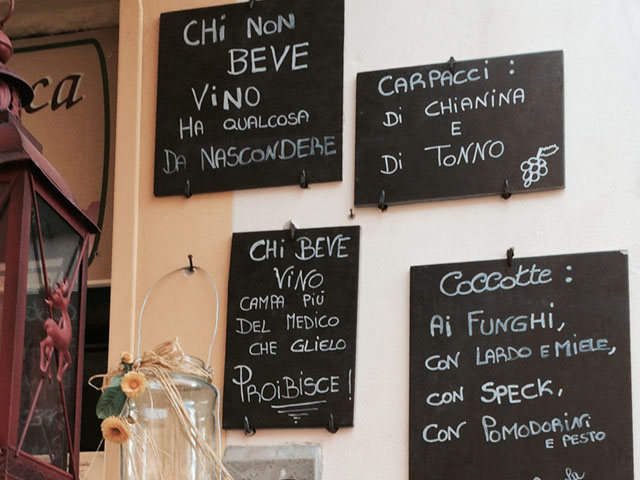 CHi NoN
BEVE
ViNO
HA QUALCOSA
DA NASCONDERE
CARPACCi :
Di CHiANiNA
E
Di TONNO
CHi BEVE
ViNO
CAMPA PiÙ
DEL MEDiCO
CHE GLiELO
PROiBiSCE!
COCCOttE :
Ai FUNGHi,
CON LARDO E MiELE,
CON SPECK,
CON POMODORiNi
E PESTO